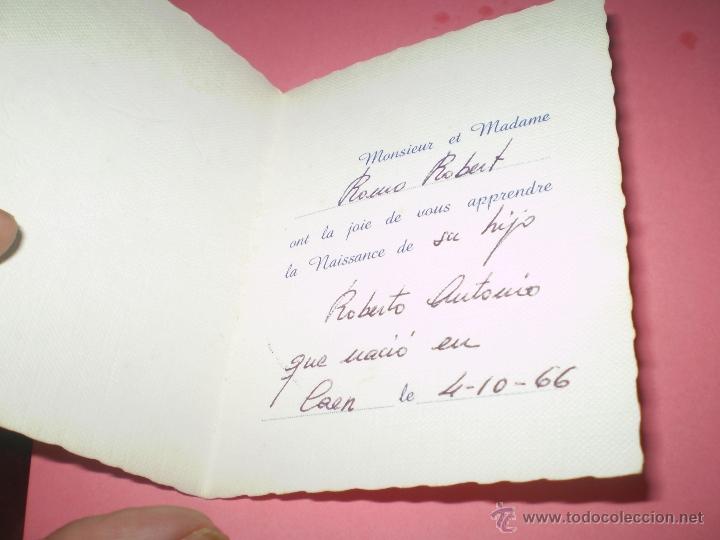 Monsieur et Madame
Romo Robert
ont la joie de vous apprendre
la Naissance de su hijo
Roberto Antonio
que nació en
Caen le 4-10-66
www.todocoleccion.net